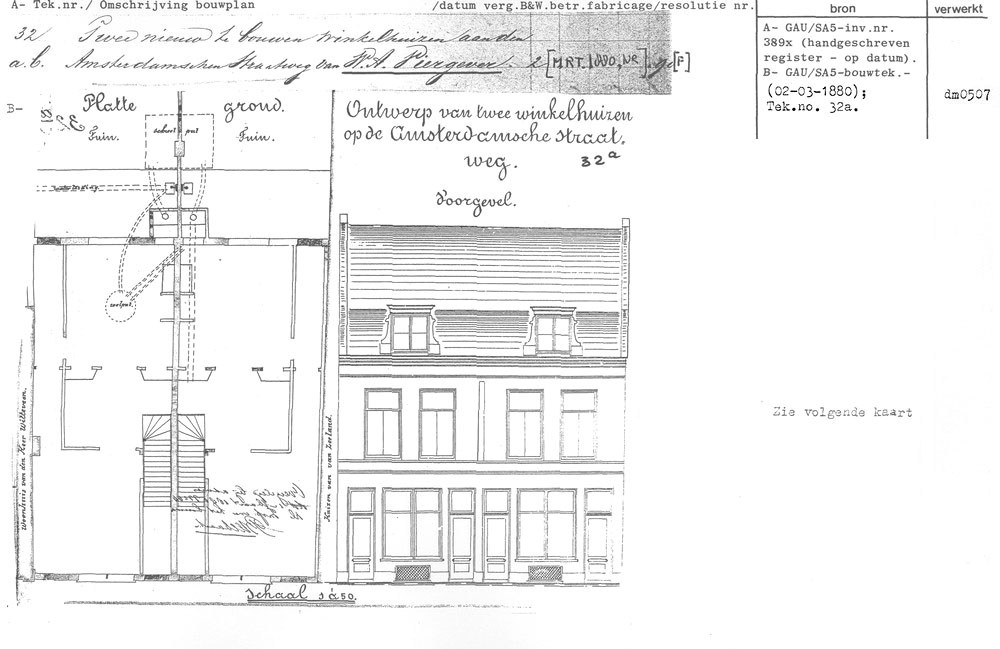 A- Tek.nr./ Omschrijving bouwplan /datum verg.B&W.betr.fabricage/resolutie nr.
bron
verwerkt
32 Twee nieuw te bouwen winkelhuizen aan den
a.b. Amsterdamschen Straatweg van W.A. Piergever. 2 [MRT. 1880, NR] [F]
A- GAU/SA5-inv.nr.
389x (handgeschreven
register - op datum).
B- GAU/SA5-bouwtek.-
(02-03-1880);
Tek.no. 32a.
dm0507
B-
Platte grond.
Tuin. Tuin.
schoot put
zeelput.
Woonhuis van den Heer Witteveen.
Huizen van van Zeeland.
Schaal 1 à 50.
Ontwerp van twee winkelhuizen
op de Amsterdamsche straat,
weg. 32a
Voorgevel.
Zie volgende kaart